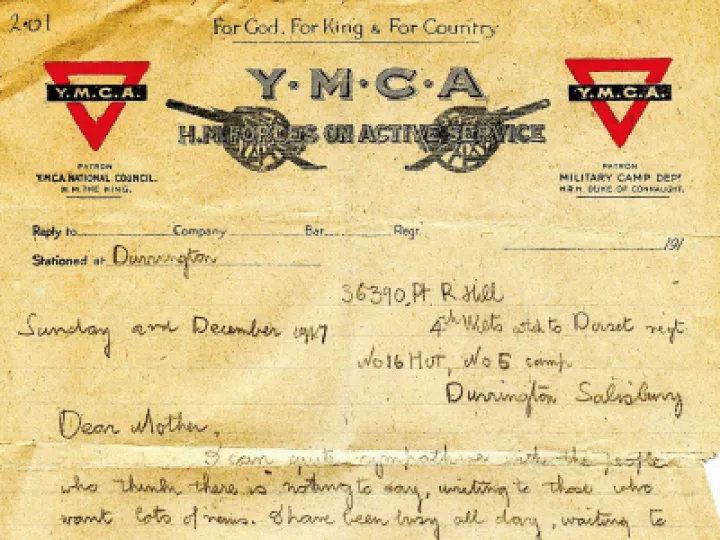 2.01
For God. For King & For Country
Y.M.C.A
Y.M.C.A. Y.M.C.A.
H.M. FORCES ON ACTIVE SERVICE
PATRON PATRON
Y.M.C.A. NATIONAL COUNCIL. MILITARY CAMP DEPT
H.M. THE KING. H.R.H. DUKE OF CONNAUGHT.
Reply to Company Bat. Regt.
191
Stationed at Durrington
36390, Pt. R Hill
Sunday 2nd December 1917 4th Wilts attd to Dorset regt
No 16 Hut, No 5 camp
Durrington Salisbury
Dear Mother,
I can quite sympathise with the people
who think there is nothing to say, writing to those who
want lots of news. I have been busy all day, waiting to